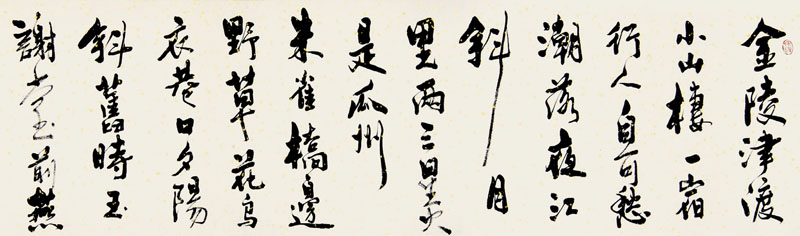 金陵津渡
小山樓一宿
行人自可愁
潮落夜江
斜月
里兩三星火
是瓜州
朱雀橋邊
野草花烏
衣巷口夕陽
斜舊時王
謝堂前燕